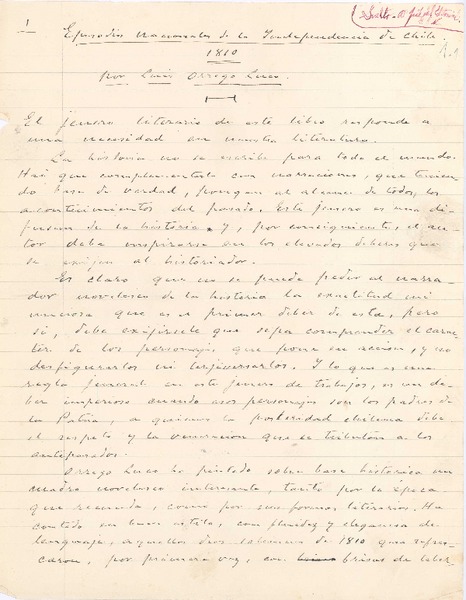 1
Episodios Nacionales de la Independencia de Chile
1810
por Luis Orrego Luco.
El jénero literario de este libro responde a
una necesidad en nuestra literatura.
La historia no se escribe para todo el mundo.
Hai que complementarla con narraciones, que tenien-
do base de verdad, pongan al alcance de todos, los
acontecimientos del pasado. Este jénero es una di-
fusion de la historia y, por consiguiente, el au-
tor debe inspirarse en los elevados deberes que
se exijen al historiador.
Es claro que no se puede pedir al narra-
dor novelesco de la historia la exactitud mi
nuciosa que es el primer deber de esta, pero
sí, debe exijírsele que sepa comprender el carac-
ter de los personajes que pone en accion, y no
desfigurarlos ni terjiversarlos. I lo que es una
regla jeneral en este jénero de trabajos, es un de-
ber imperioso cuando esos personajes son los padres de
la Patria, a quienes la posteridad chilena debe
el respeto y la veneracion que se tributan a los
antepasados.
Orrego Luco ha pintado sobre base histórica un
cuadro novelesco interesante, tanto por la época
que recuerda, como por sus formas literarias. Ha
contado en buen estilo, con fluidez y elegancia de
lenguaje, aquellos dias solemnes de 1810 que refres-
caron, por primera vez, con brisas de liber-